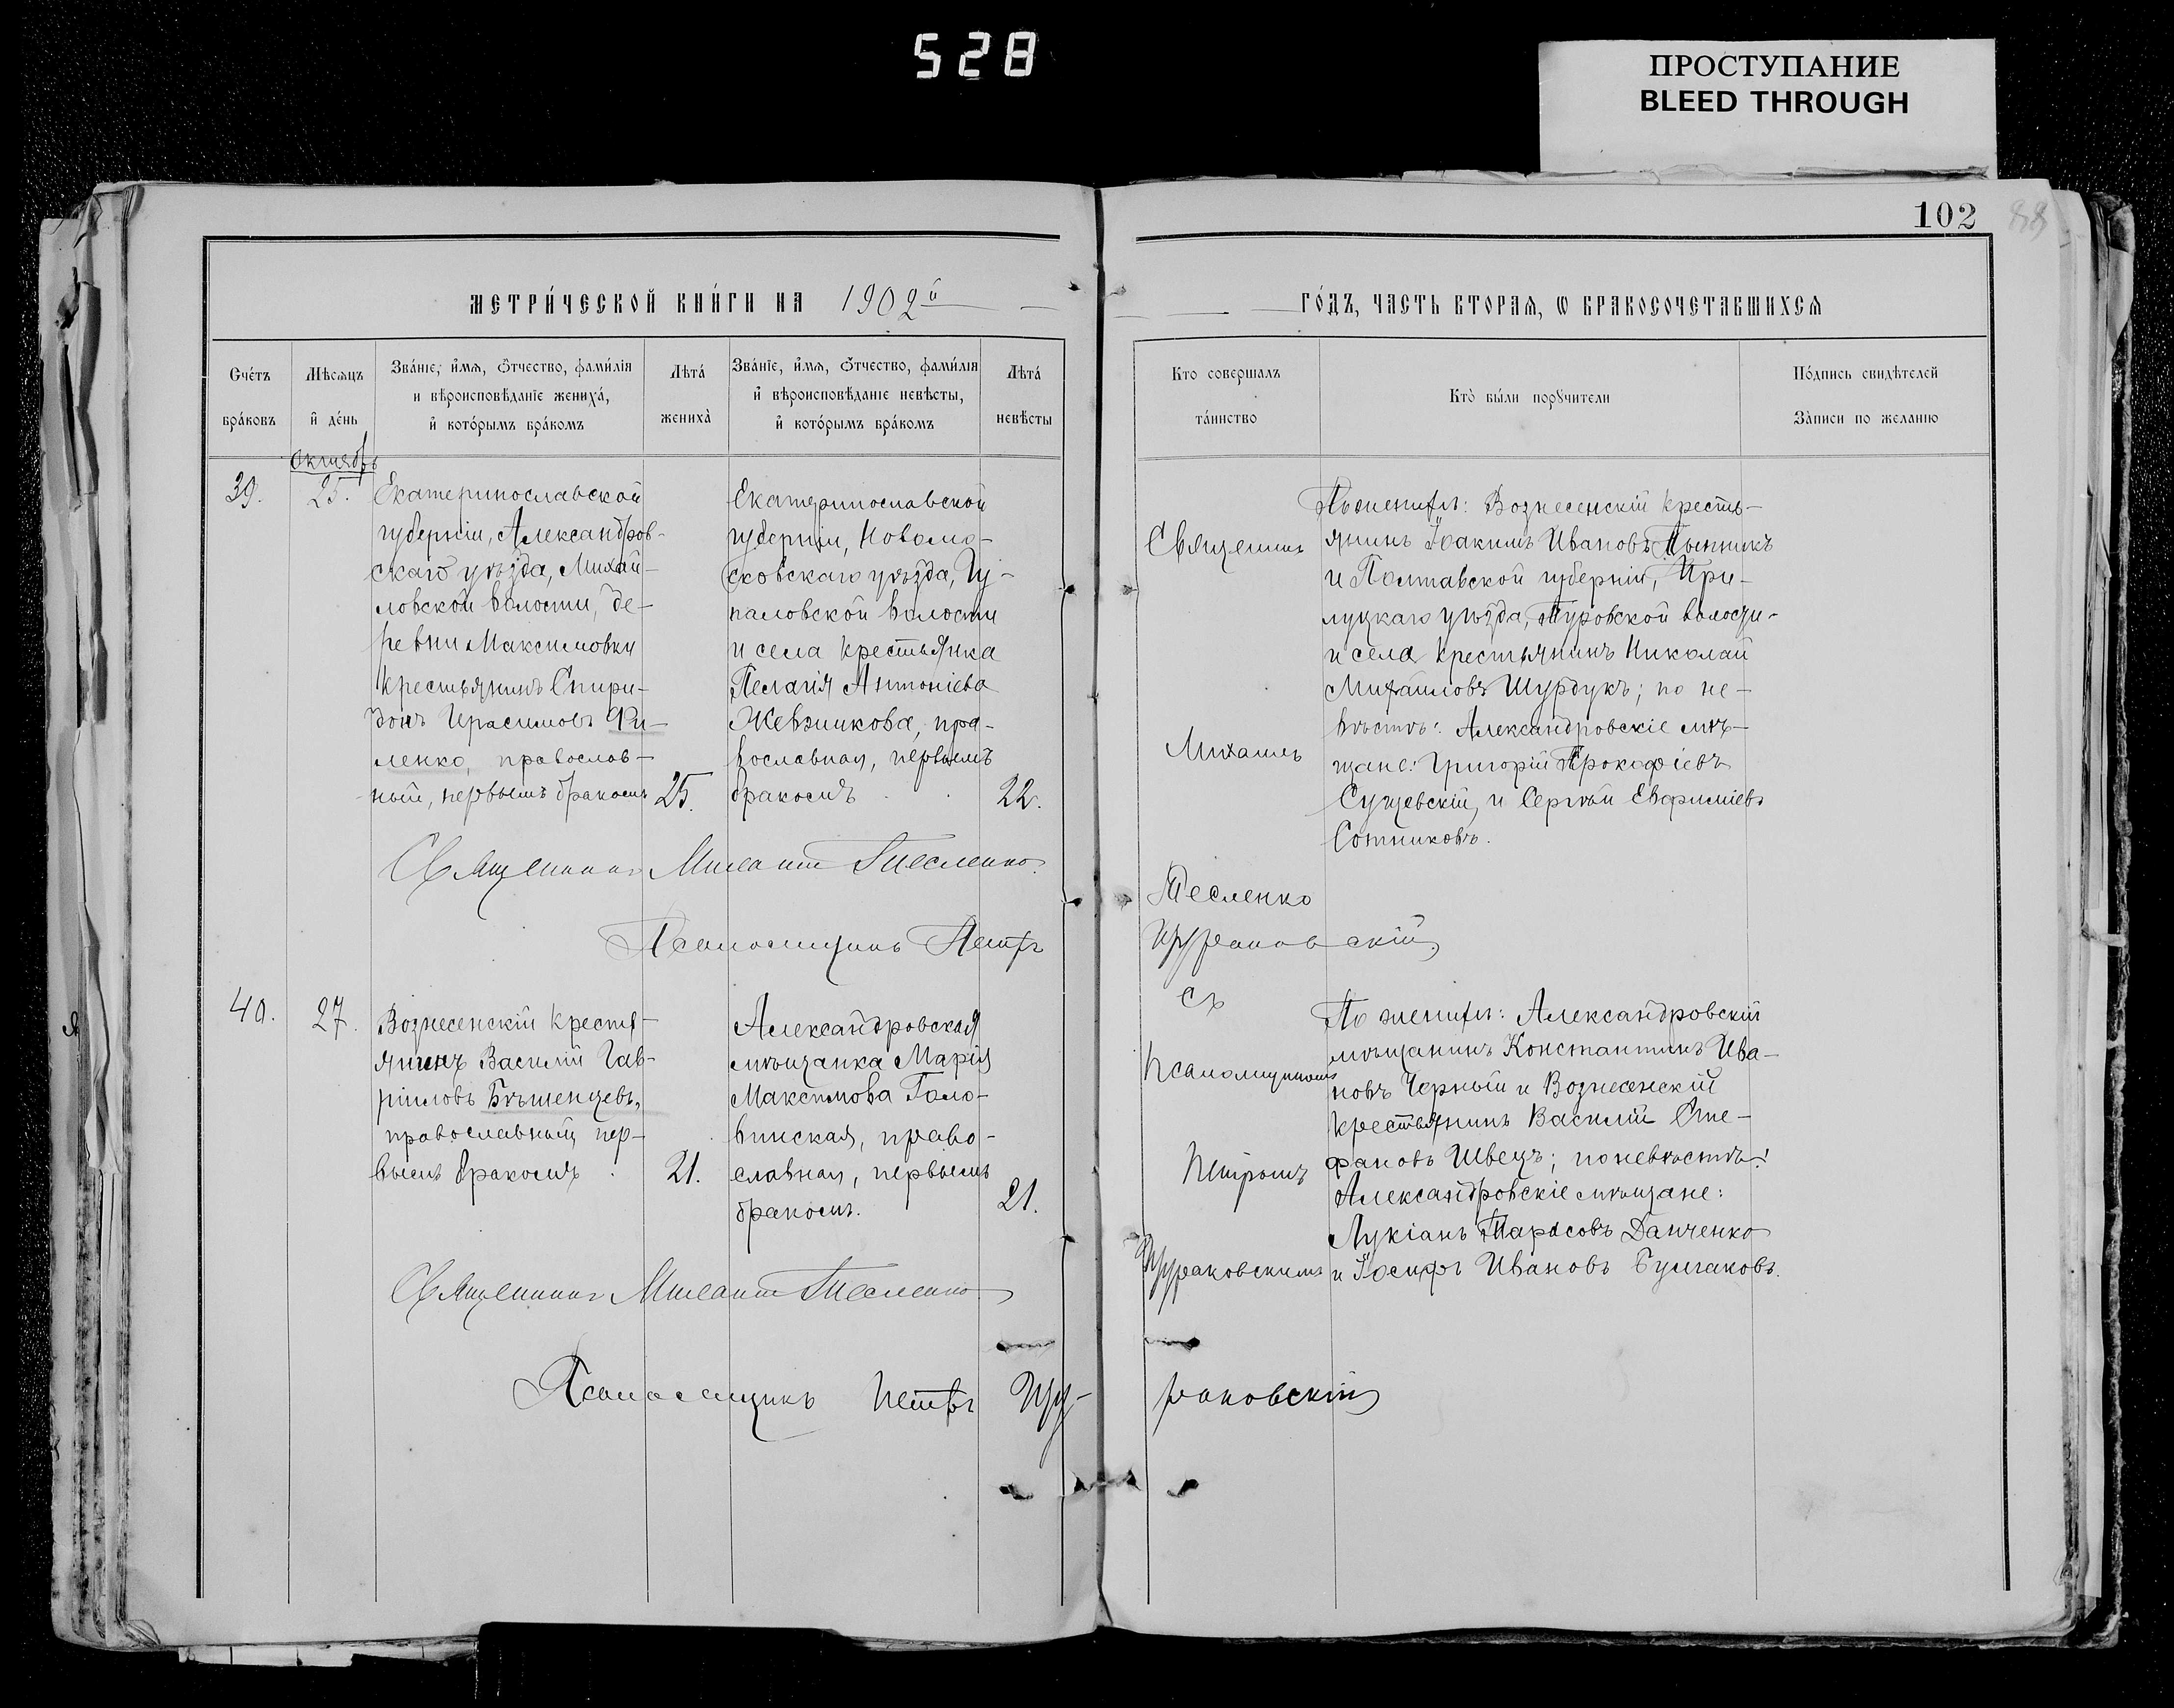 528
ПРОСТУПАНИЕ
BLEED THROUGH
102
МЕТРИ́ЧЕСКОЙ КНИ́ГИ НА 1902й
ГО́ДЪ, ЧАСТЬ ВТОРАѦ, Ѡ БРАКОСОЧЕТАВШИХСѦ
Счетъ
бра́ковъ
Мѣсѧцъ
и҆ де́нь
Зва́нїе, и҆мѧ, ѻ҆тчество, фами́лїѧ
и вѣроисповѣданїе жениха́,
и҆ кото́рымъ бра́комъ
Лѣта́
жениха̀
Зва́нїе, и҆мѧ, ѻ҆тчество, фами́лїѧ
и҆ вѣроисповѣданїе невѣсты,
и҆ кото́рымъ бра́комъ
Лѣта́
невѣсты
Кто совершалъ
та́инство
Кто̀ бы́ли порꙋчители
По́дпись свидѣтелей
За́писи по желанію
Октябрь
39.
25.
Екатеринославской
губерніи, Александров-
скаго уѣзда, Михай-
ловской волости, де-
ревни Максимовки
крестьянинъ Спири-
донъ Герасимовъ Фи-
ленко, православ-
ный, первымъ бракомъ
25.
Екатеринославской
губерніи, Новомо-
сковскаго уѣзда, Гу-
паловской волости
и села крестьянка
Пелагія Антоніева
Жевзикова, пра-
вославная, первымъ
бракомъ
22.
Священникъ
Михаилъ
Тесленко
По женихѣ: Вознесенскій кресть-
янинъ Іоакимъ Ивановъ
и Полтавской губерніи, При-
луцкаго уѣзда, Туровской волости
и села крестьянинъ Николай
Михайловъ Шурдукъ; по не-
вѣстѣ: Александровскіе мѣ-
щане: Григорій Прокофіевъ
Сущевскій, и Сергѣй Евфиміевъ
Сотниковъ.
Священникъ Михаилъ Тесленко.
Псаломщикъ Петръ
40.
27.
Вознесенскій кресть-
янинъ Василій Гав-
ріиловъ Бѣшенцевъ,
православный, пер-
вымъ бракомъ
21.
Александровская
мѣщанка Марія
Максимова Голо-
винская, право-
славная, первымъ
бракомъ.
21.
съ
псаломщикомъ
Петромъ
По женихѣ: Александровскій
мѣщанинъ Константинъ Ива-
новъ Черный и Вознесенскій
крестьянинъ Василій Сте-
фановъ Швецъ; по невѣстѣ:
Александровскіе мѣщане:
Лукіанъ Тарасовъ Данченко
и Іосифъ Ивановъ Булгаковъ.
Священникъ Михаилъ Тесленко
Псаломщикъ Петръ